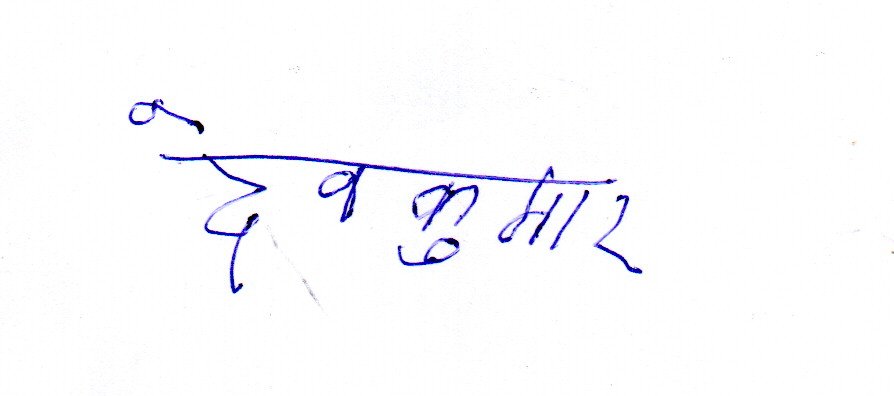 देवकुमार